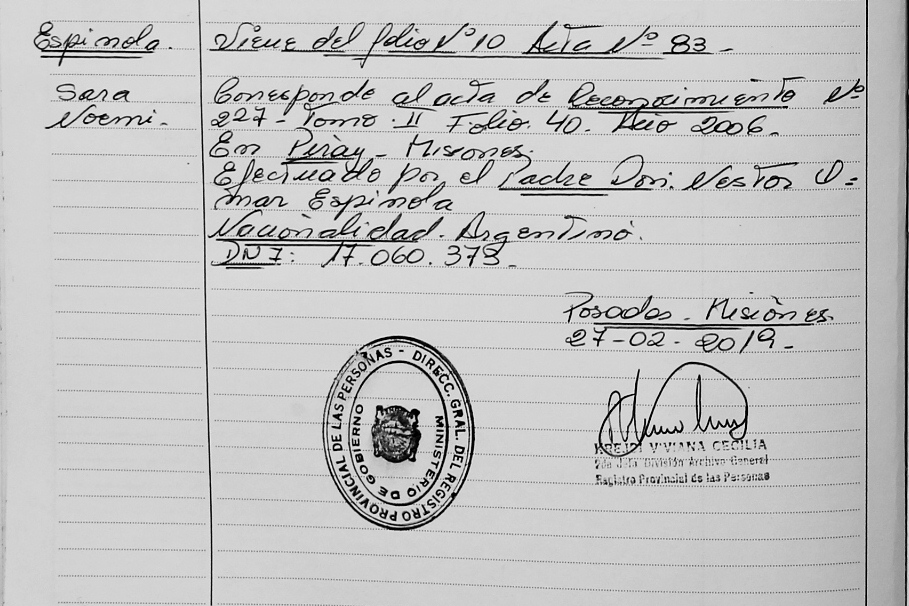 Espinola.
Viene del folio Nº 10 Acta Nº 83 -
Sara
Noemi.-
Corresponde al acta de Reconocimiento Nº
227 - Tomo. II Folio. 40. Año 2006.-
En Piray - Misiones.
Efectuado por el Padre Don. Nestor O=
mar Espinola
Nacionalidad. Argentino.
DNI: 17.060.373.-
Posadas - Misiones
27-02-2019.-
DIRECC. GRAL. DEL REGISTRO PROVINCIAL DE LAS PERSONAS -
MINISTERIO DE GOBIERNO
VIVIANA CECILIA
2da Jefa División Archivo General
Registro Provincial de las Personas